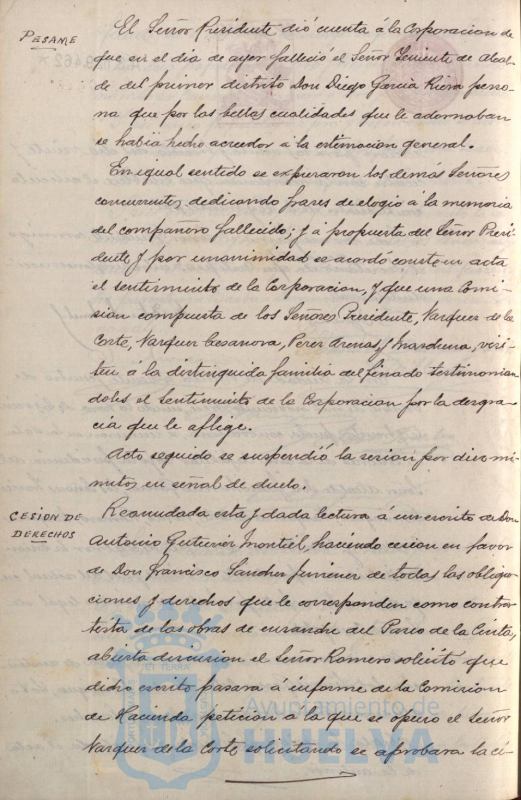 PESAME
El Señor Presidente dió cuenta á la Corporacion de
que en el dia de ayer falleció el Señor Teniente de Alcal-
de del primer distrito Don Diego Garcia Riera perso-
na que por las bellas cualidades que le adornaban
se habia hecho acreedor á la estimacion general.
En igual sentido se expresaron los demás Señores
concurrentes, dedicando frases de elogio á la memoria
del compañero fallecido; y á propuesta del Señor Presi-
dente y por unanimidad se acordó conste en acta
el sentimiento de la Corporacion, y que una Comi-
sion compuesta de los Señores Presidente, Vazquez de la
Corte, Vazquez Casanova, Perez Arenas, y visi-
ten á la distinguida familia del finado testimonian
doles el Sentimiento de la Corporacion por la desgra-
cia que le aflige.
Acto seguido se suspendió la sesion por diez mi-
nutos en señal de duelo.
CESION DE
DERECHOS
Reanudada esta y dada lectura á un escrito de Don
Antonio Gutierrez Montiel, haciendo cesion en favor
de Don Francisco Sanchez Jimenez de todas las obliga-
ciones y derechos que le corresponden como contra-
tista de las obras de ensanche del Paseo de la Cinta,
abierta discusion el Señor Romero solicitó que
dicho escrito pasara á informe de la Comision
de Hacienda peticion á la que se opuso el Señor
Vazquez de la Corte solicitando se aprobara la ce-
Ayuntamiento de
HUELVA